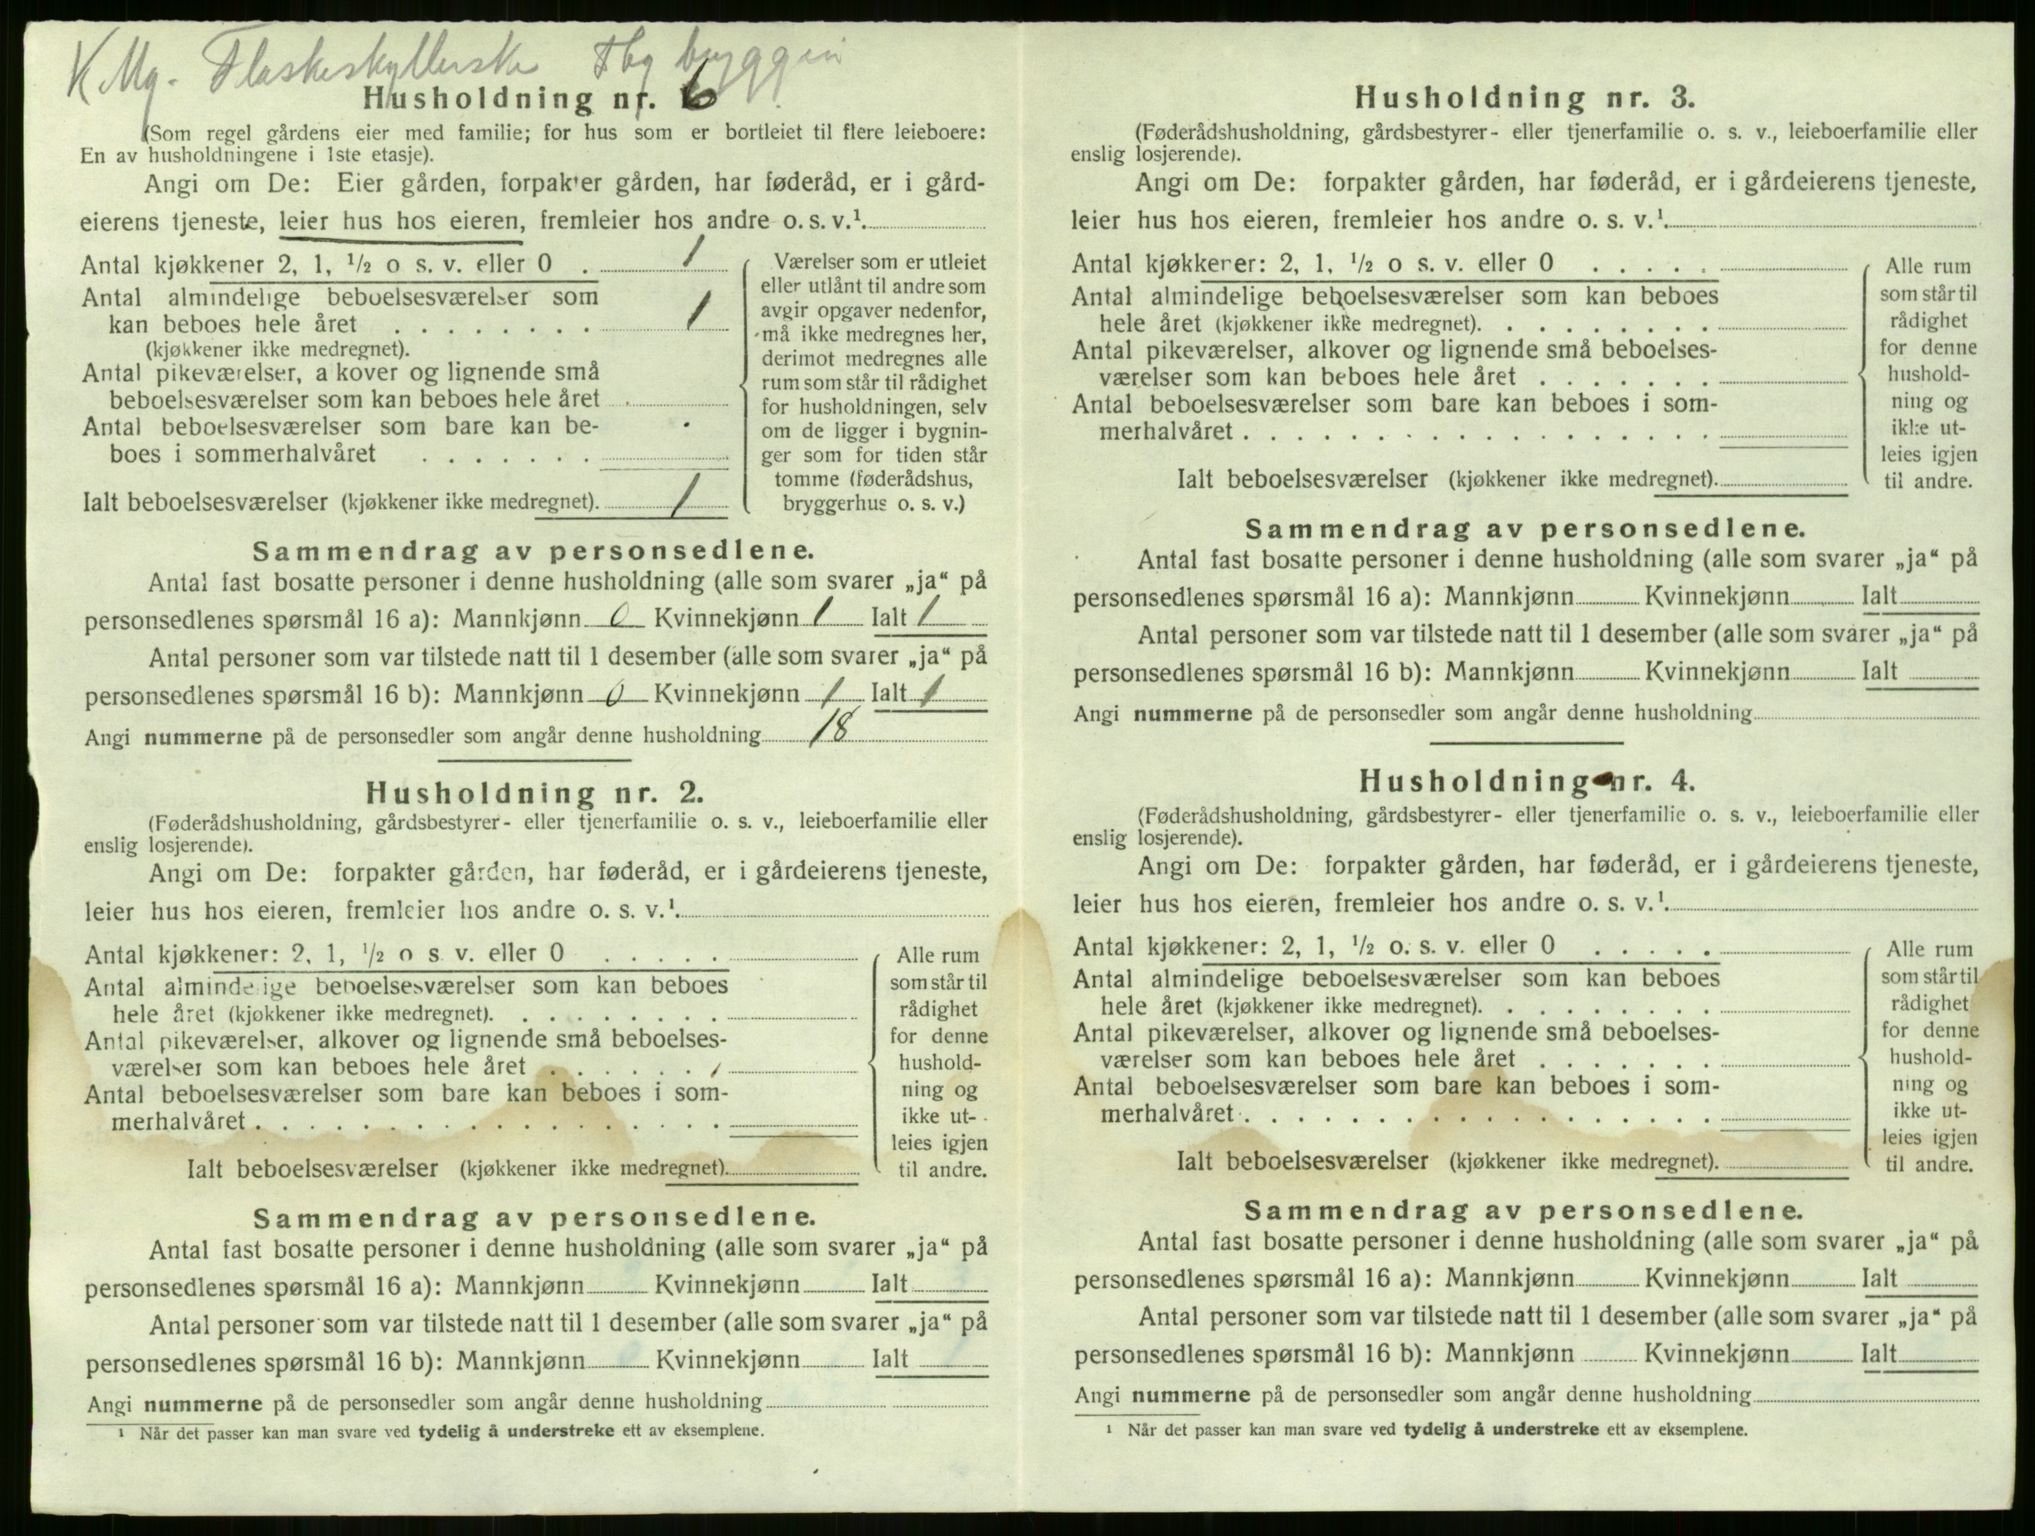 K Mg. Flaskeskyllerske Hbg bryggeri
Husholdning nr. 6
(Som regel gårdens eier med familie; for hus som er bortleiet til flere leieboere:
En av husholdningene i 1ste etasje).
Angi om De: Eier gården, forpakter gården, har føderåd, er i gård-
eierens tjeneste, leier hus hos eieren, fremleier hos andre o. s. v.¹
Antal kjøkkener 2, 1, ½ o s. v. eller 0 . 1
Antal almindelige beboelsesværelser som
kan beboes hele året . . . . . . . . 1
(kjøkkener ikke medregnet).
Antal pikeværelser, a kover og lignende små
beboelsesværelser som kan beboes hele året
Antal beboelsesværelser som bare kan be-
boes i sommerhalvåret . . . . . . .
Ialt beboelsesværelser (kjøkkener ikke medregnet). 1
Værelser som er utleiet
eller utlånt til andre som
avgir opgaver nedenfor,
må ikke medregnes her,
derimot medregnes alle
rum som står til rådighet
for husholdningen, selv
om de ligger i bygnin-
ger som for tiden står
tomme (føderådshus,
bryggerhus o. s. v.)
Sammendrag av personsedlene.
Antal fast bosatte personer i denne husholdning (alle som svarer „ja“ på
personsedlenes spørsmål 16 a): Mannkjønn 0 Kvinnekjønn 1 Ialt 1
Antal personer som var tilstede natt til 1 desember (alle som svarer „ja“ på
personsedlenes spørsmål 16 b): Mannkjønn 0 Kvinnekjønn 1 Ialt 1
Angi nummerne på de personsedler som angår denne husholdning 18
Husholdning nr. 2.
(Føderådshusholdning, gårdsbestyrer- eller tjenerfamilie o. s. v., leieboerfamilie eller
enslig losjerende).
Angi om De: forpakter gården, har føderåd, er i gårdeierens tjeneste,
leier hus hos eieren, fremleier hos andre o. s. v.¹.
Antal kjøkkener: 2, 1, ½ o s. v. eller 0 . . . . .
Antal almindelige beboelsesværelser som kan beboes
hele året (kjøkkener ikke medregnet). . . . . . . . .
Antal pikeværelser, alkover og lignende små beboelses-
værelser som kan beboes hele året . . . . . . .
Antal beboelsesværelser som bare kan beboes i som-
merhalvåret . . . . . . . . . . . . . . . . . .
Ialt beboelsesværelser (kjøkkener ikke medregnet).
Alle rum
som står til
rådighet
for denne
hushold-
ning og
ikke ut-
leies igjen
til andre.
Sammendrag av personsedlene.
Antal fast bosatte personer i denne husholdning (alle som svarer „ja“ på
personsedlenes spørsmål 16 a): Mannkjønn Kvinnekjønn Ialt
Antal personer som var tilstede natt til 1 desember (alle som svarer „ja“ på
personsedlenes spørsmål 16 b): Mannkjønn Kvinnekjønn Ialt
Angi nummerne på de personsedler som angår denne husholdning
¹ Når det passer kan man svare ved tydelig å understreke ett av eksemplene.
Husholdning nr. 3.
(Føderådshusholdning, gårdsbestyrer- eller tjenerfamilie o. s. v., leieboerfamilie eller
enslig losjerende).
Angi om De: forpakter gården, har føderåd, er i gårdeierens tjeneste,
leier hus hos eieren, fremleier hos andre o. s. v.¹.
Antal kjøkkener: 2, 1, ½ o s. v. eller 0 . . . . .
Antal almindelige beboelsesværelser som kan beboes
hele året (kjøkkener ikke medregnet). . . . . . . . .
Antal pikeværelser, alkover og lignende små beboelses-
værelser som kan beboes hele året . . . . . . .
Antal beboelsesværelser som bare kan beboes i som-
merhalvåret . . . . . . . . . . . . . . . . . .
Ialt beboelsesværelser (kjøkkener ikke medregnet).
Alle rum
som står til
rådighet
for denne
hushold-
ning og
ikke ut-
leies igjen
til andre.
Sammendrag av personsedlene.
Antal fast bosatte personer i denne husholdning (alle som svarer „ja“ på
personsedlenes spørsmål 16 a): Mannkjønn Kvinnekjønn Ialt
Antal personer som var tilstede natt til 1 desember (alle som svarer „ja“ på
personsedlenes spørsmål 16 b): Mannkjønn Kvinnekjønn Ialt
Angi nummerne på de personsedler som angår denne husholdning
Husholdning nr. 4.
(Føderådshusholdning, gårdsbestyrer- eller tjenerfamilie o. s. v., leieboerfamilie eller
enslig losjerende).
Angi om De: forpakter gården, har føderåd, er i gårdeierens tjeneste,
leier hus hos eieren, fremleier hos andre o. s. v.¹.
Antal kjøkkener: 2, 1, ½ o. s. v. eller 0 . . . . .
Antal almindelige beboelsesværelser som kan beboes
hele året (kjøkkener ikke medregnet). . . . . . . . .
Antal pikeværelser, alkover og lignende små beboelses-
værelser som kan beboes hele året . . . . . . .
Antal beboelsesværelser som bare kan beboes i som-
merhalvåret . . . . . . . . . . . . . . . . . .
Ialt beboelsesværelser (kjøkkener ikke medregnet).
Alle rum
som står til
rådighet
for denne
hushold-
ning og
ikke ut-
leies igjen
til andre.
Sammendrag av personsedlene.
Antal fast bosatte personer i denne husholdning (alle som svarer „ja“ på
personsedlenes spørsmål 16 a): Mannkjønn Kvinnekjønn Ialt
Antal personer som var tilstede natt til 1 desember (alle som svarer „ja“ på
personsedlenes spørsmål 16 b): Mannkjønn Kvinnekjønn Ialt
Angi nummerne på de personsedler som angår denne husholdning
¹ Når det passer kan man svare ved tydelig å understreke ett av eksemplene.